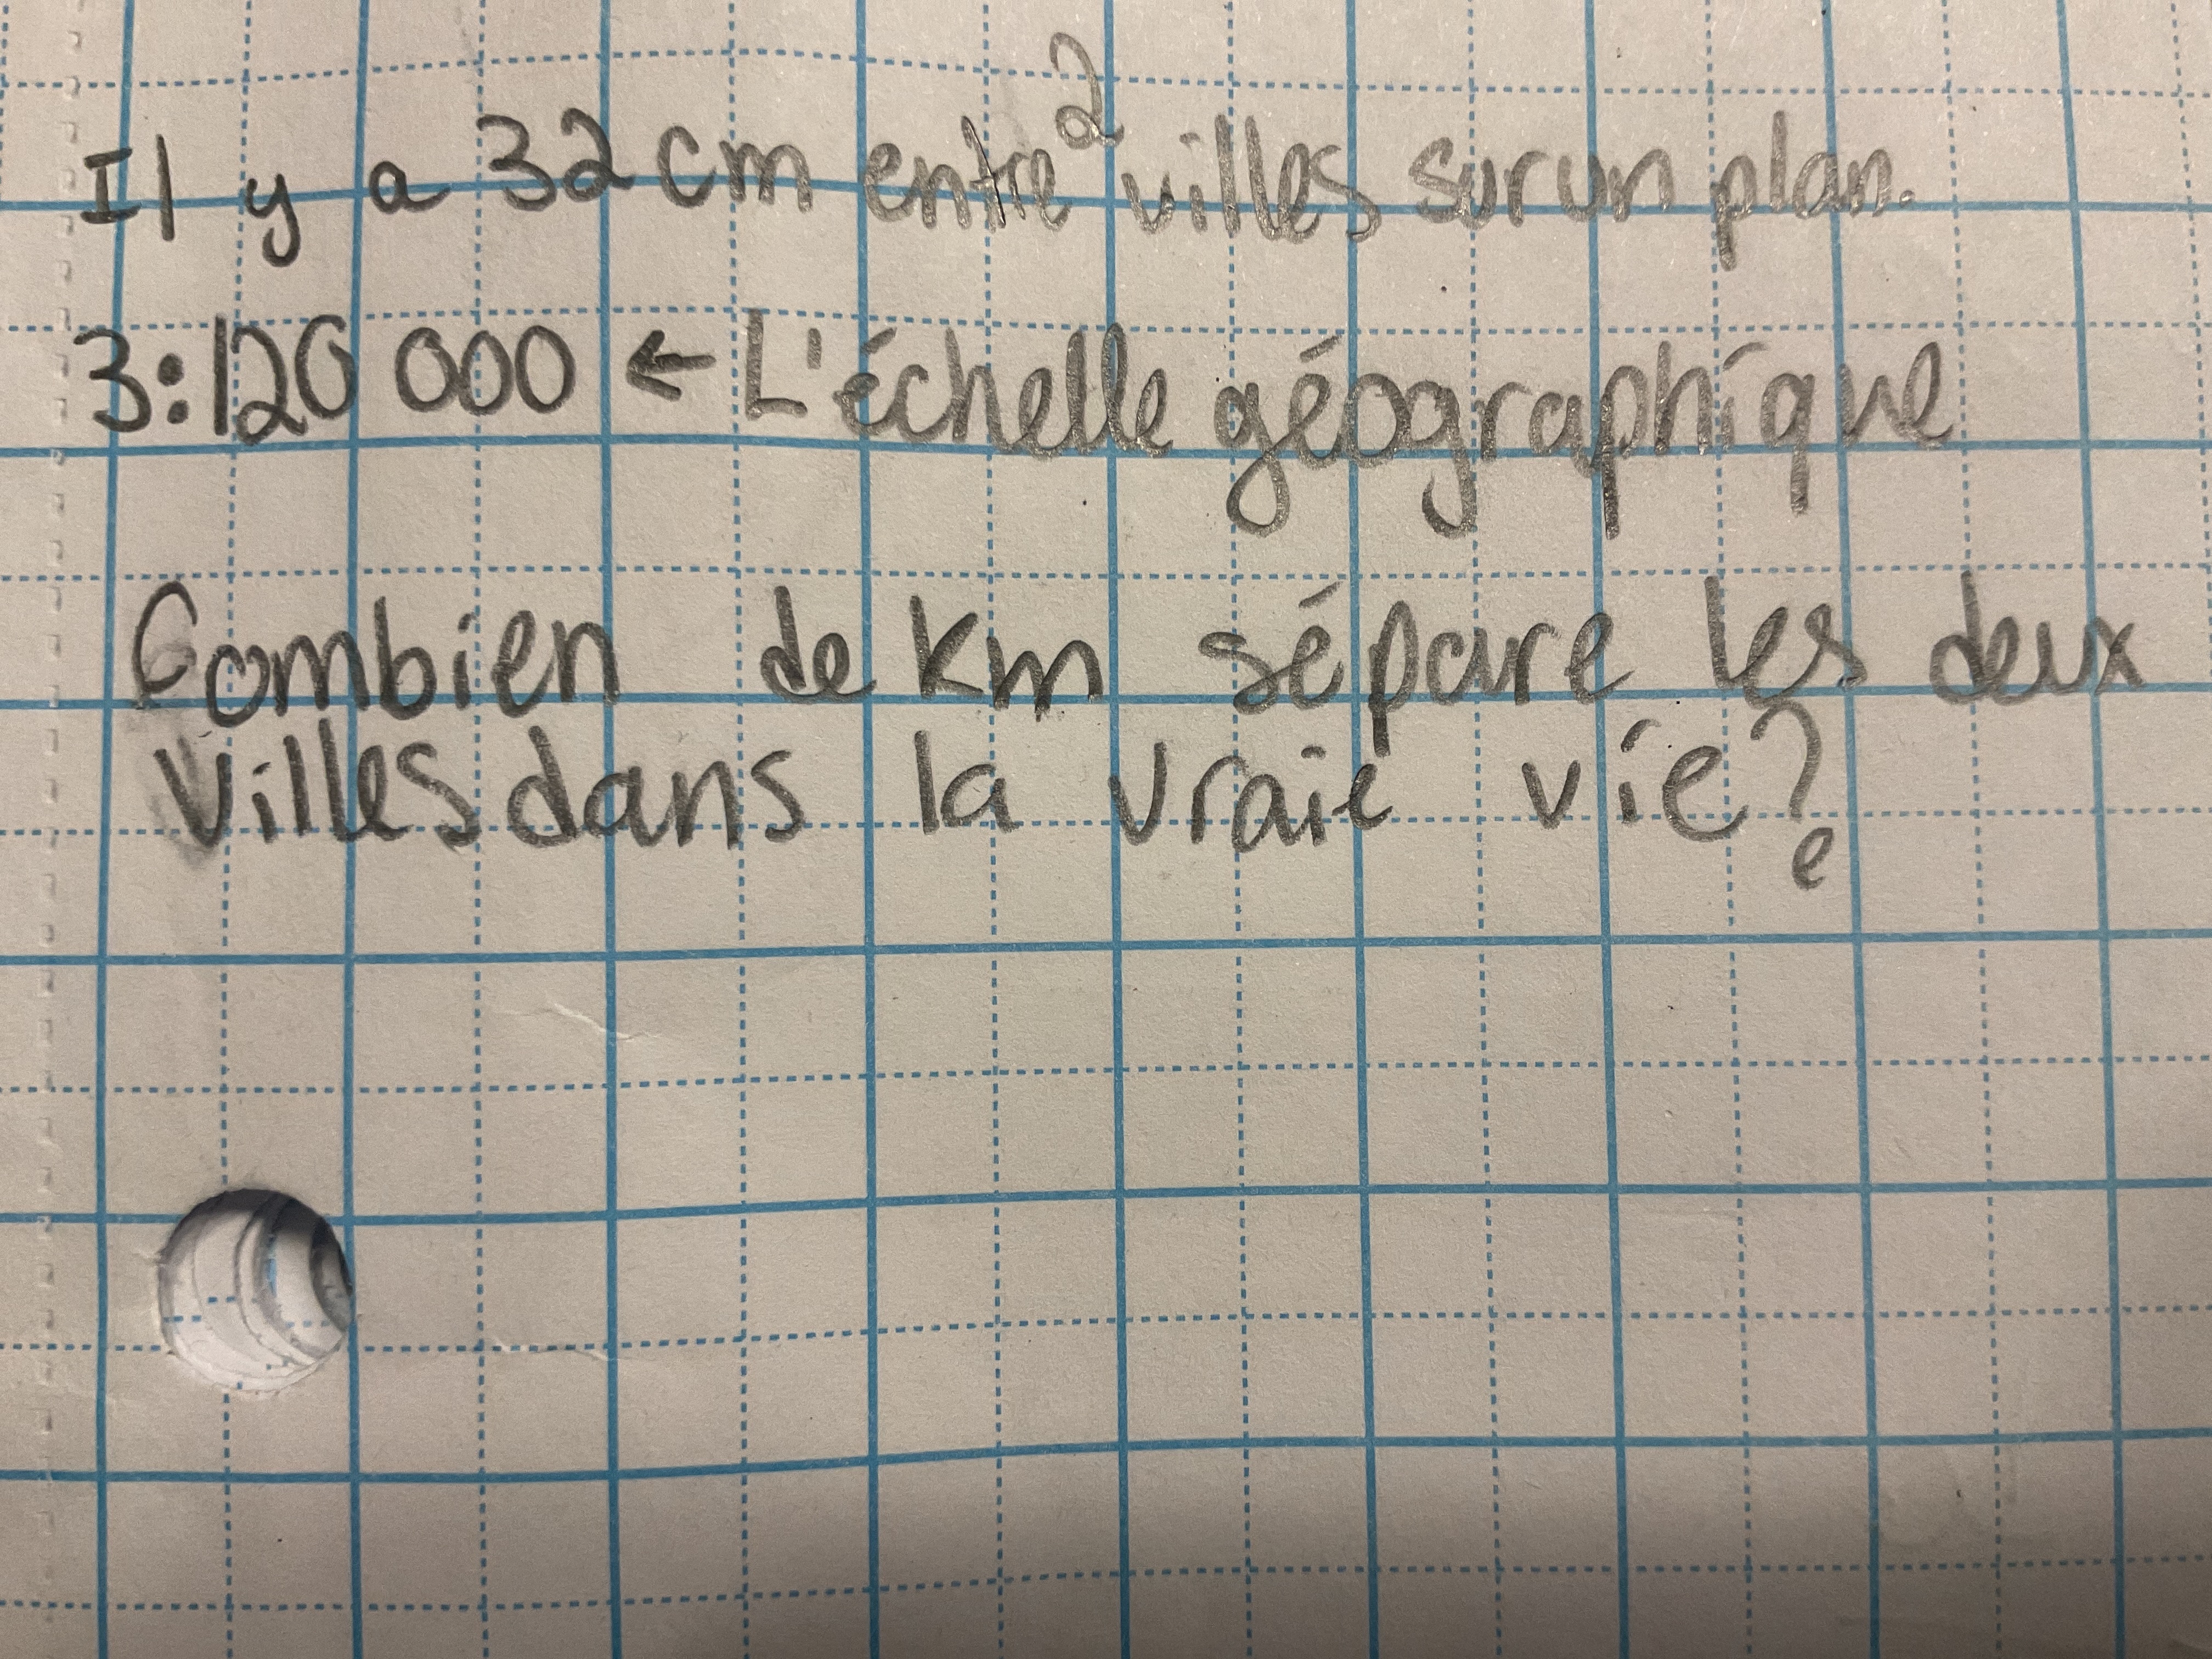 Il y a 32 cm entre 2 villes sur un plan.
3:120 000 ← L'échelle géographique
Combien de km sépare les deux
villes dans la vraie vie?